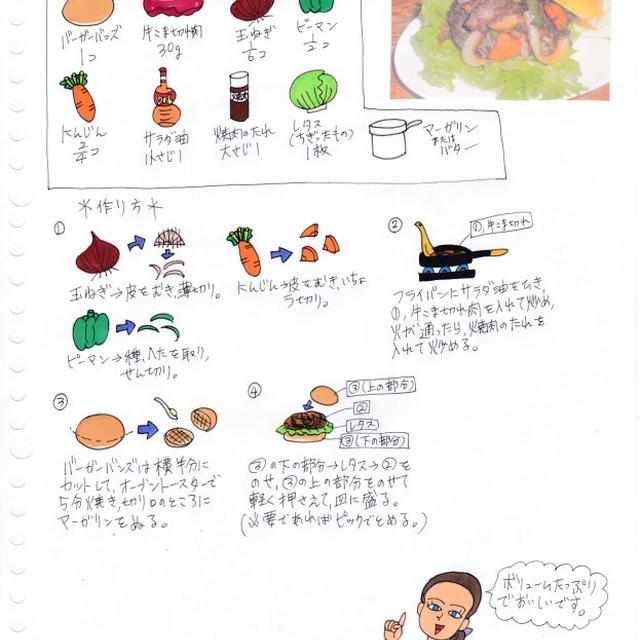 バーガーバンズ
1コ
牛こま切れ肉
30g
玉ねぎ
1/6コ
ピーマン
1/2コ
にんじん
サラダ油
小さじ1
焼肉のたれ
大さじ1
レタス
(ちぎったもの)
1枚
マーガリン
または
バター
＊作り方＊
①
玉ねぎ→皮をむき、薄切り。
にんじん→皮をむき、いちょ
う切り。
ピーマン→種、ヘタを取り、
せん切り。
②
①、牛こま切れ
フライパンにサラダ油をひき、
①、牛こま切れ肉を入れて炒め、
火が通ったら、焼肉のたれを
入れて炒める。
③
バーガーバンズは横半分に
カットして、オーブントースターで
5分焼き、切り口のところに
マーガリンをぬる。
④
③(上の部分)
②
レタス
③(下の部分)
③の下の部分→レタス→②を
のせ、③の上の部分をのせて
軽く押さえて、皿に盛る。
(必要であればピックでとめる。)
ボリュームたっぷり
でおいしいです。